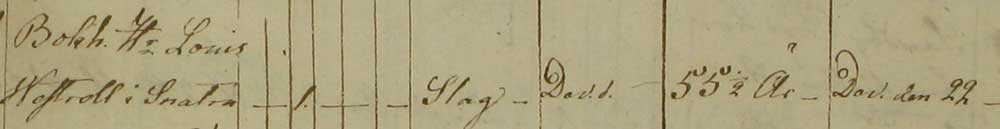 Bokh. Hr Louis
Westroll i Snatra – 1. – – Slag – Dav. d. – 55½ År – Dav. den 22 –